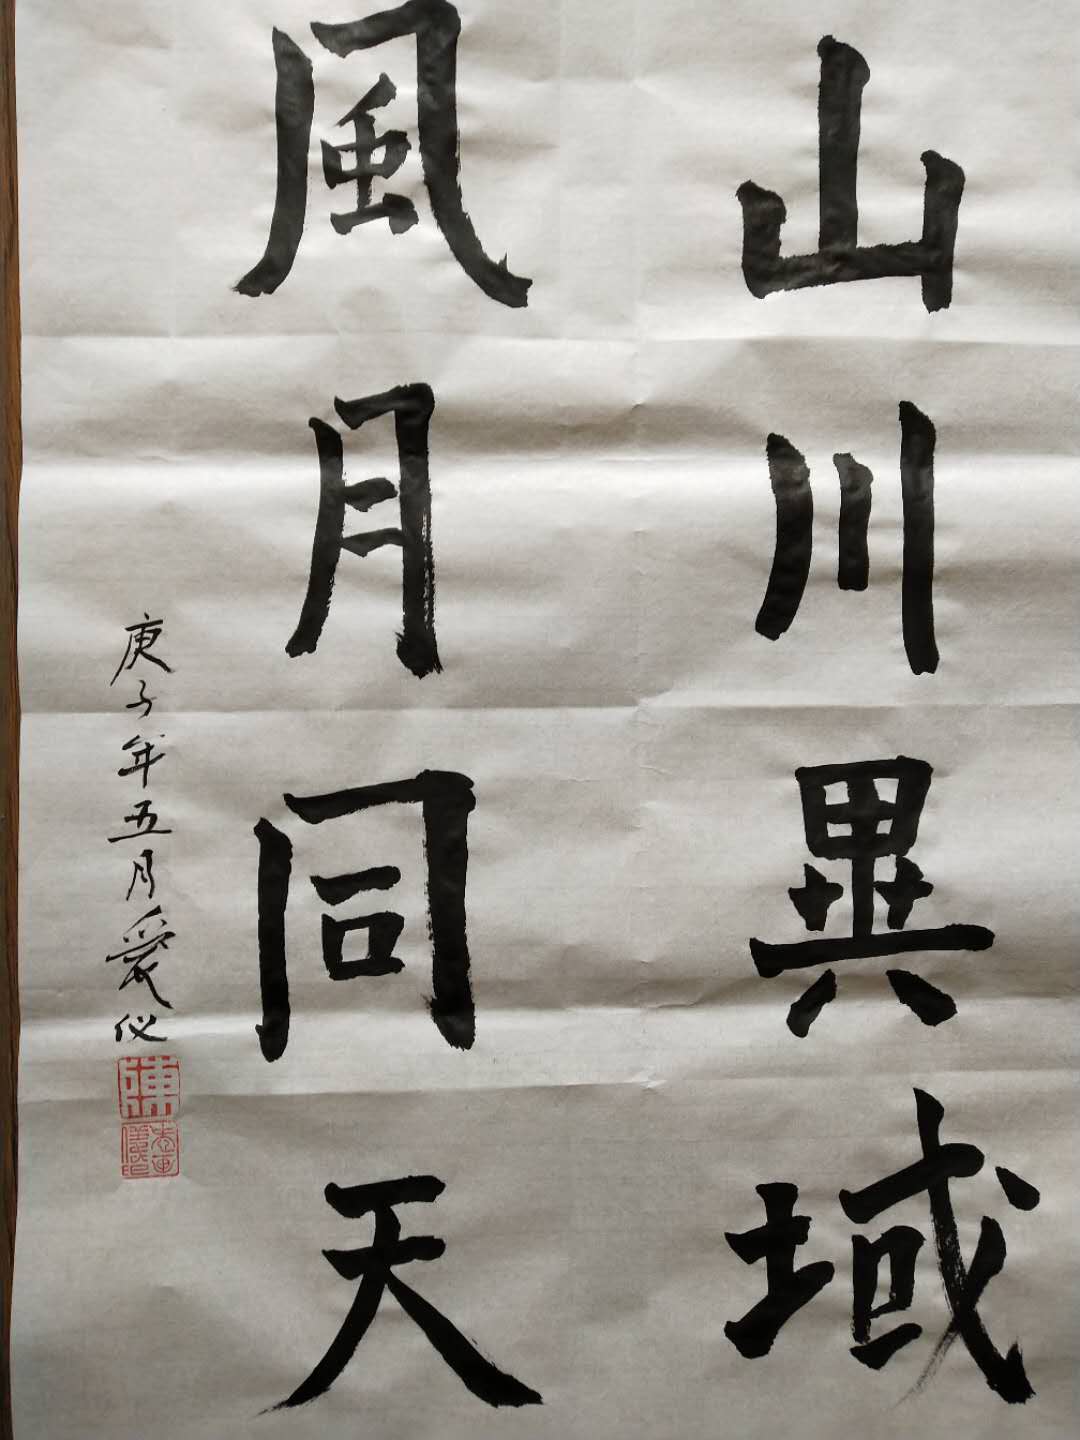 山川異域
風月同天
庚子年五月愛儀